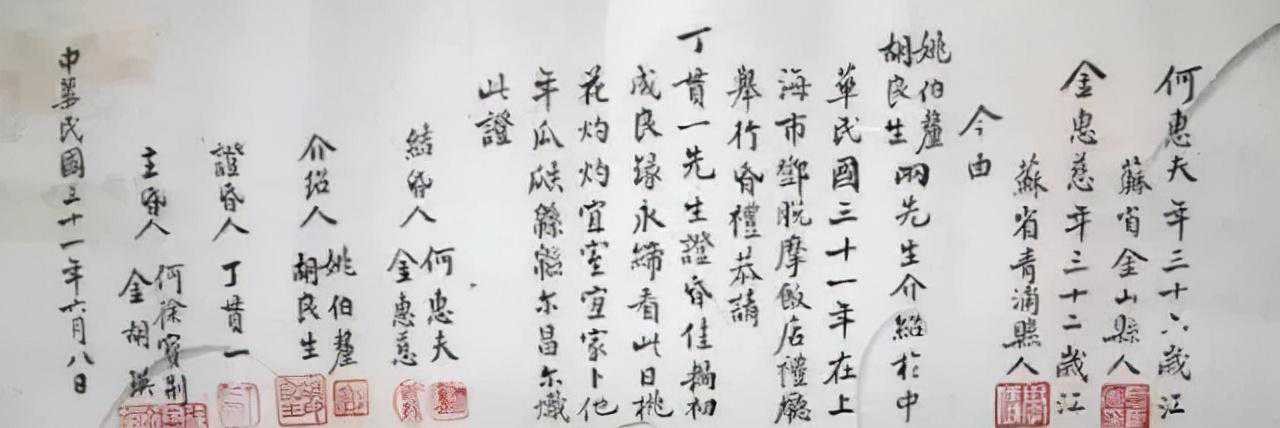 何惠夫年三十六歲江
蘇省金山縣人
金惠慈年三十二歲江
蘇省青浦縣人
今由
姚伯釐
胡良生
兩先生介紹於中
華民國三十一年在上
海市鄧脫摩飯店禮廳
舉行昏禮恭請
丁貫一先生證昏佳耦初
成良緣永締看此日桃
花灼灼宜室宜家卜他
年瓜瓞緜緜尔昌尔熾
此證
結昏人
何惠夫
金惠慈
介紹人
姚伯釐
胡良生
證昏人 丁貫一
主昏人
何徐寶
金胡瑛
中華民國三十一年六月八日